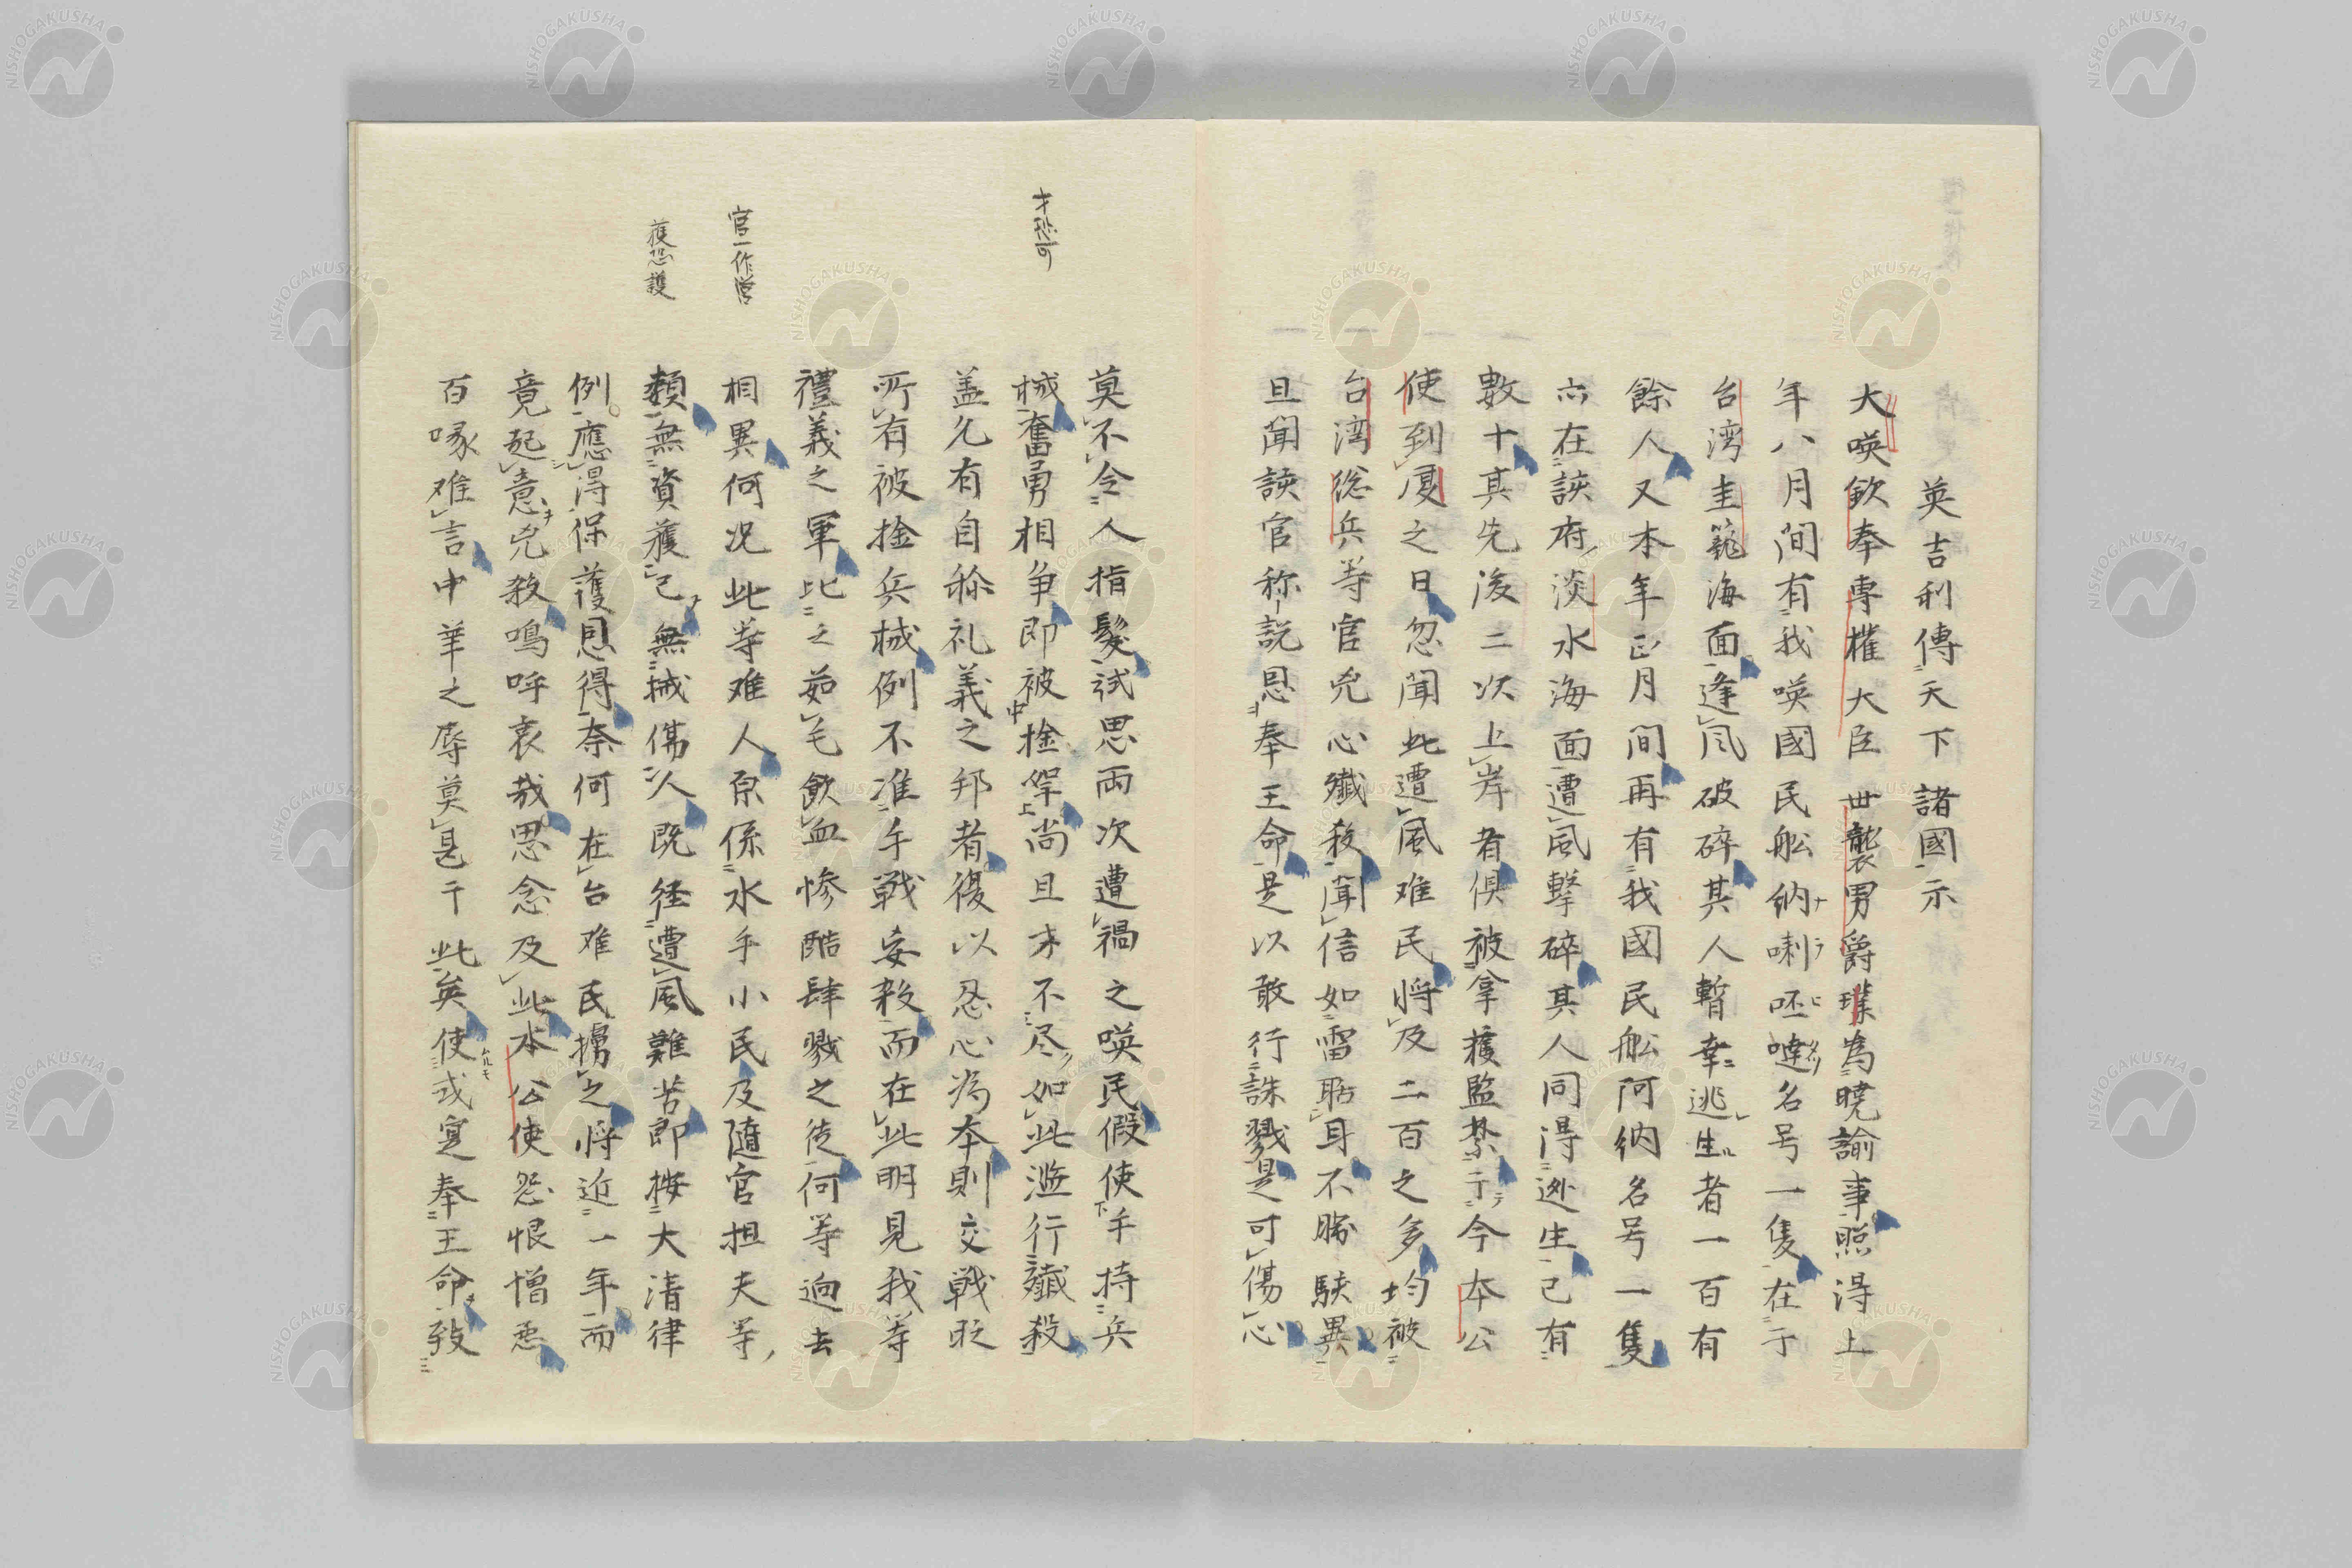 英吉利傳天下諸國示
大𠸄欽奉專權大臣世襲男爵璞為曉諭事照得上
年八月間有我𠸄國民舩納喇呸噠名号一隻在于
台湾圭籠海面逢风破碎其人暫幸逃生者一百有
餘人又本年正月間再有我國民舩阿納名号一隻
六在該府淡水海面遭風擊碎其人同得逊生已有
數十其先後二次上岸者倶被拿獲監禁于今本公
使到厦之日忽聞此遭風难民将及二百之多均被
台湾総兵等官兇心殲殺聞信如雷聒耳不勝駭異
且聞該官称説恩奉王命是以敢行誅戮是可傷心
莫不令人指髮試思両次遭禍之𠸄民假使手持兵
械奮勇相争即被捡拏尚且才不尽如此滥行殲殺
盖凢有自称礼義之邦者復以忍心為本則交戦时
所有被捡兵械例不准手戦妄殺而在此明見我等
禮義之軍比之茹毛飲血惨酷肆戮之徒何等逈去
相異何况此等难人原係水手小民及隨官担夫等
類無資獲已無械傷人既徑遭風難苦即按大清律
例應得保護恩得奈何在台难民擄之将近一年而
竟起意兇殺鳴呼哀哉思念及此本公使怨恨憎悪
百喙难言中華之辱莫甚于此矣使或寔奉王命致
才恐可
官一作營
獲恐護
NISHOGAKUSHA